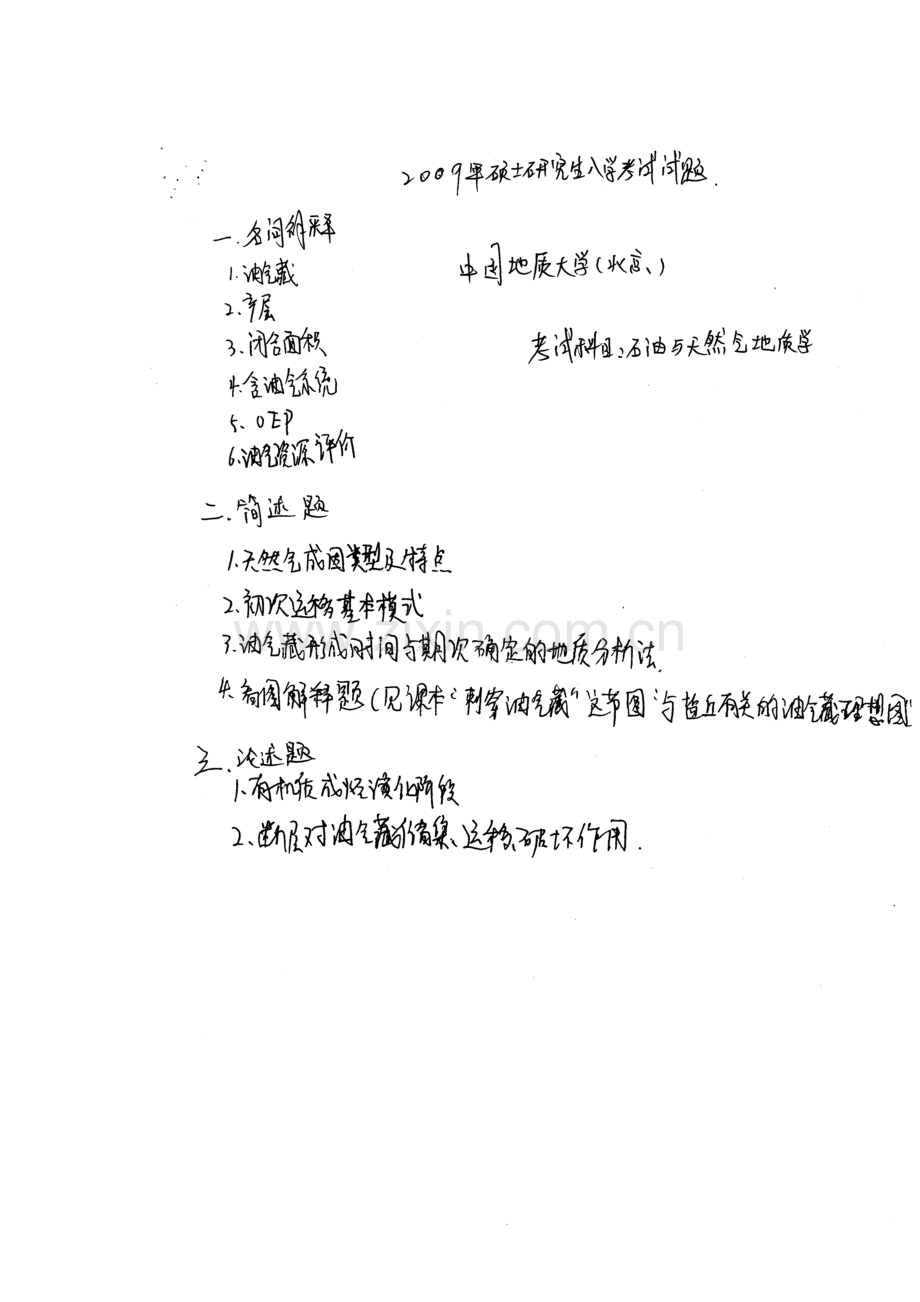 2009年硕士研究生入学考试试题.
一.名词解释
中国地质大学(北京、)
1.油气藏
2.产层
3.闭合面积
考试科目:石油与天然气地质学
4.含油气系统
5.OEP
6.油气资源评价
二.简述题
1.天然气成因类型及特点
2.初次运移基本模式
www.zixin.com.cn
3.油气藏形成时间与期次确定的地质分析法.
4.看图解释题(见课本“刺穿油气藏”这节图“与盐丘有关的油气藏理想图”
三.论述题
1.有机质成烃演化阶段
2.断层对油气藏储集、运移、破坏作用.